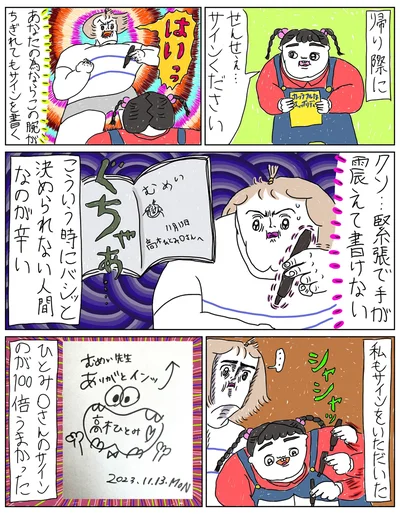 帰り際に
せんせぇ…
サインください
はいっっ
あなたの為ならこの腕が
ちぎれてもサインを書く
クソ…緊張で手が
震えて書けない
むめい
11月13日
ぐちゃぁ…
こういう時にバシッと
決められない人間
なのが辛い
私もサインをいただいた
シャシャッ
むめい先生
ありがとインッ
高木ひとみ
2023.11.13.MON
ひとみ〇さんのサイン
のが100倍うまかった